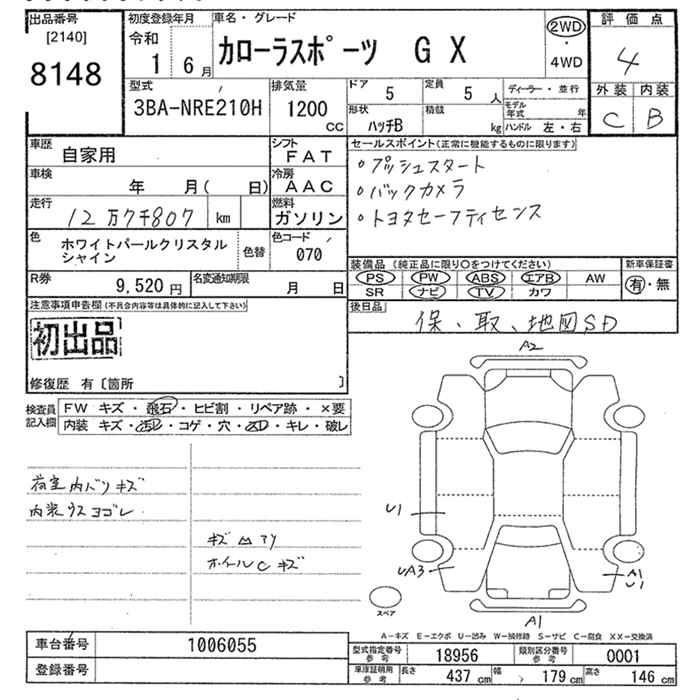 出品番号
[2140]
8148
初度登録年月
令和
1 6月
車名・グレード
カローラスポーツ GX
2WD
・
4WD
評価点
4
外装 内装
C B
型式
3BA-NRE210H
排気量
1200
cc
ドア
5
定員
5人
形状
ハッチB
積載
kg
ディーラー・並行
モデル年式 年
ハンドル 左・右
車歴
自家用
シフト
FAT
車検
年 月( 日)
冷房
AAC
走行
12万7千807 km
燃料
ガソリン
色
ホワイトパールクリスタル
シャイン
色替
色コード
070
R券
9,520円
名変通知期限
月 日
セールスポイント(正常に機能するものに限ります)
・プッシュスタート
・バックカメラ
・トヨタセーフティセンス
装備品 (純正品に限り○をつけてください)
PS PW ABS エアB AW
SR ナビ TV カワ
新車保証書
有・無
後日品
保、取、地図SD
注意事項申告欄(不具合内容等は具体的に記入して下さい)
初出品
修復歴 有〔箇所 〕
検査員
記入欄
FW キズ・飛石・ヒビ割・リペア跡・×要
内装 キズ・汚レ・コゲ・穴・スレ・キレ・破レ
荷室内バリキズ
内装ウスヨゴレ
キズ凹アリ
ホイールCキズ
A2
U1
UA3
A1
U1
スペア
A1
A-キズ E-エクボ U-凹み W-補修跡 S-サビ C-腐食 XX-交換済
車台番号
1006055
登録番号
型式指定番号
参考
18956
類別区分番号
参考
0001
車庫証明用
参考
長さ
437cm
幅
179cm
高さ
146cm